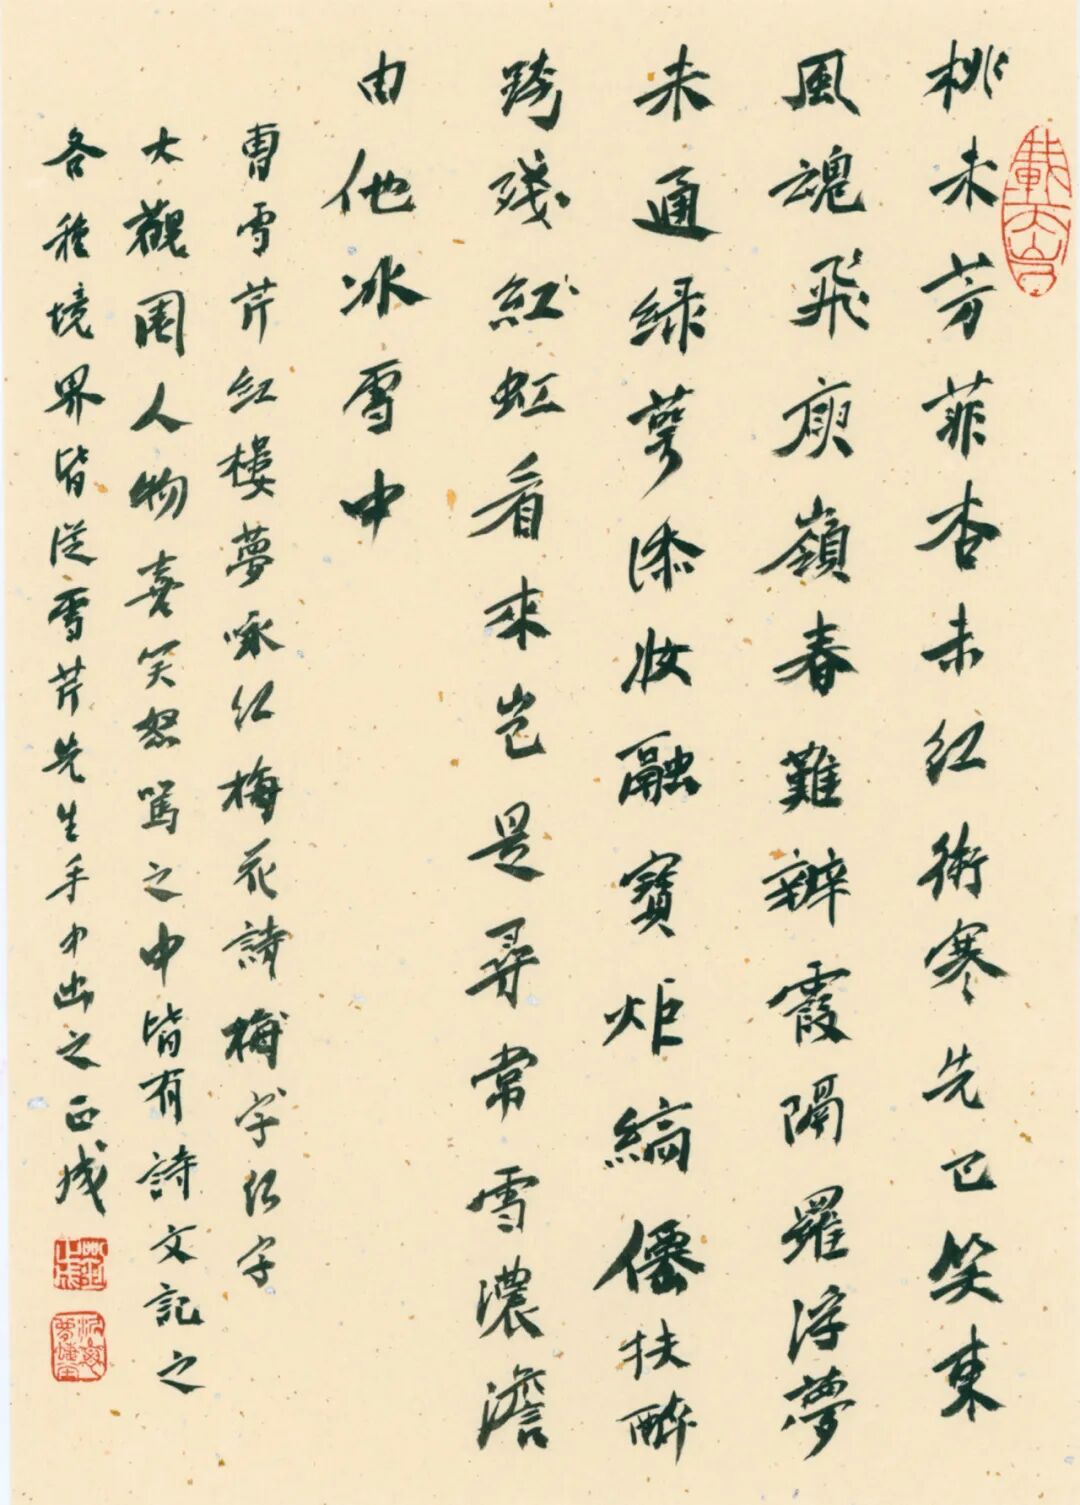 桃未芳菲杏未红衝寒先已笑東
風魂飛庾嶺春難辨霞隔羅浮夢
未通绿萼添妝融寶炬縞僊扶醉
跨殘紅虹看來岂是尋常雪濃澹
由他冰雪中
曹雪芹红樓夢咏红梅花詩梅字红字
大觀園人物喜笑怒罵之中皆有詩文記之
各種境界皆从雪芹先生手中出之正成